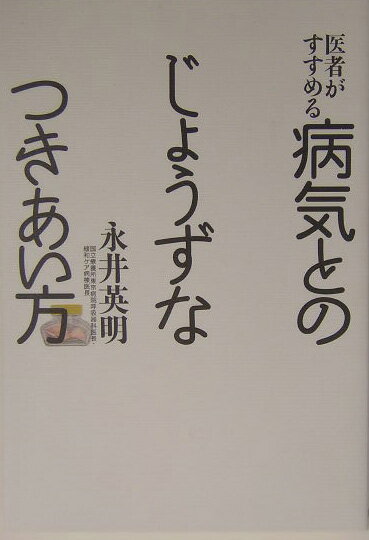 医者が
すすめる
病気との
じょうずな
つきあい方
永井英明
国立療養所東京病院呼吸器科医長・
緩和ケア病棟医長